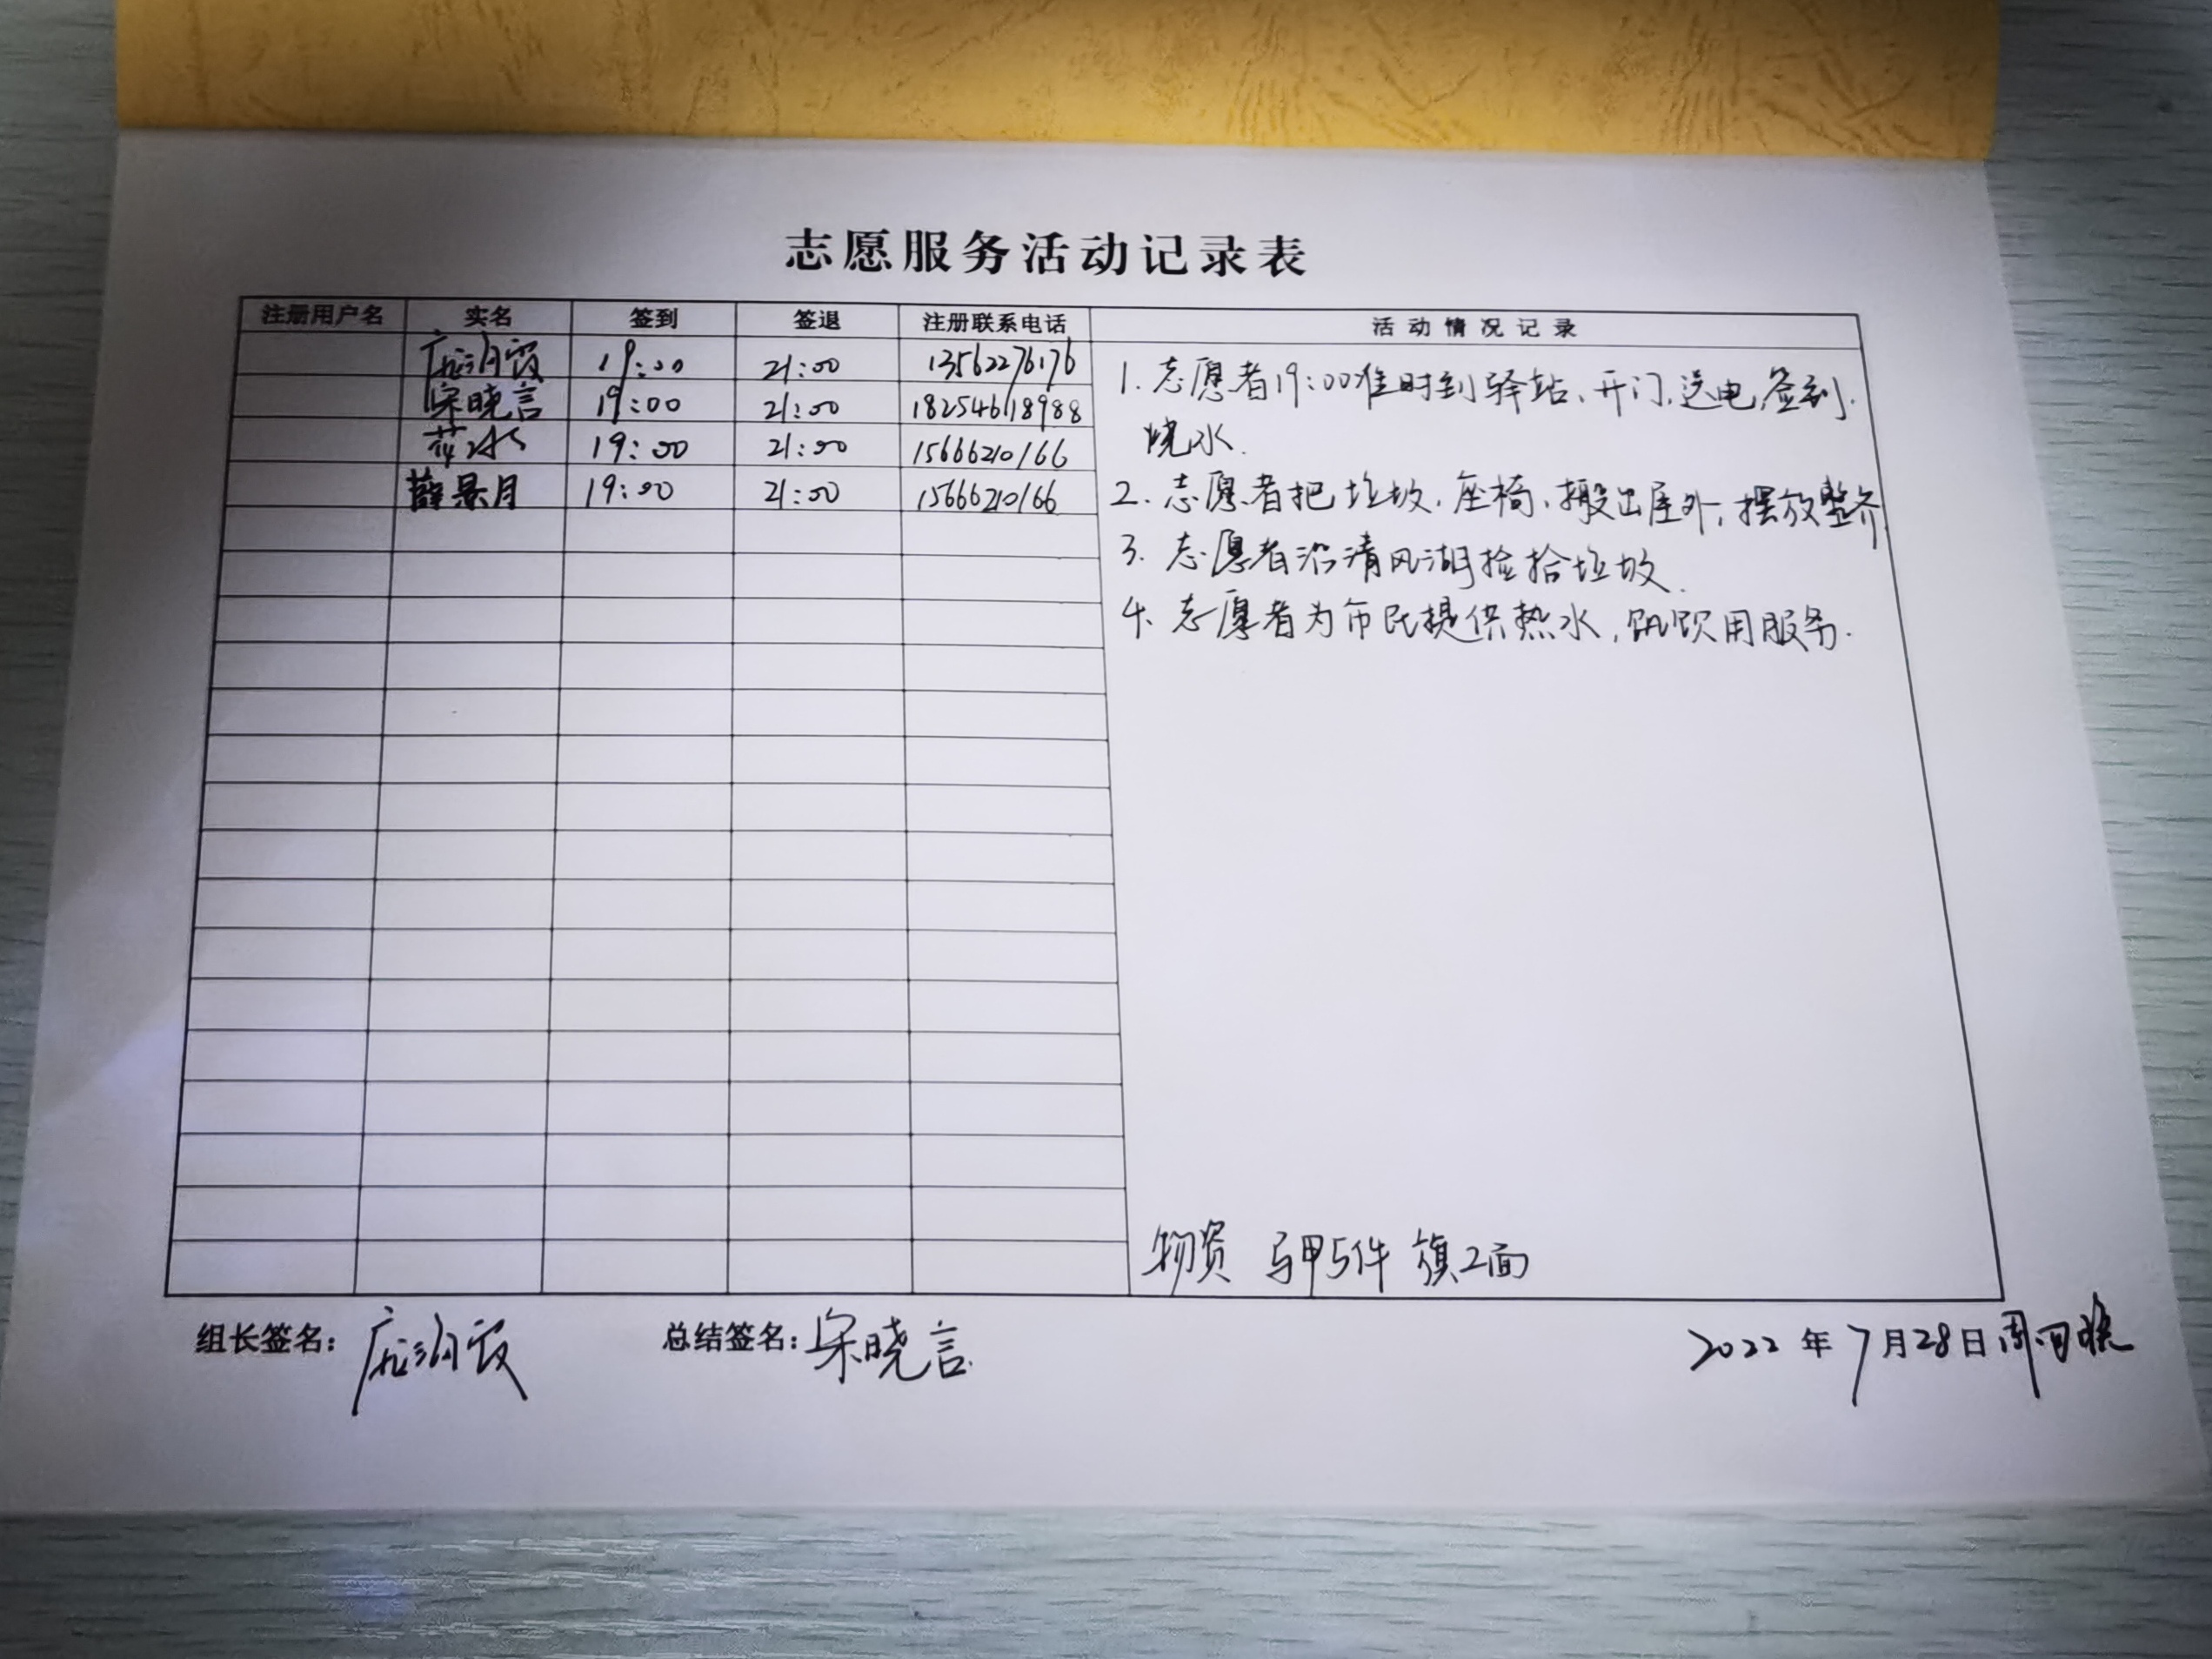 志愿服务活动记录表
注册用户名 实名 签到 签退 注册联系电话 活动情况记录
19:00 21:00 13562276176
宋晓言 19:00 21:00 182546118988
19:00 21:00 15666210166
薛景月 19:00 21:00 15666210166
1. 志愿者19:00准时到驿站、开门,送电,签到.
烧水.
2. 志愿者把垃圾,座椅,搬出屋外,摆放整齐
3. 志愿者沿清风湖捡拾垃圾.
4. 志愿者为市民提供热水,饮用服务.
物资 马甲5件 旗2面
组长签名:
总结签名:宋晓言
2022年7月28日周四晚